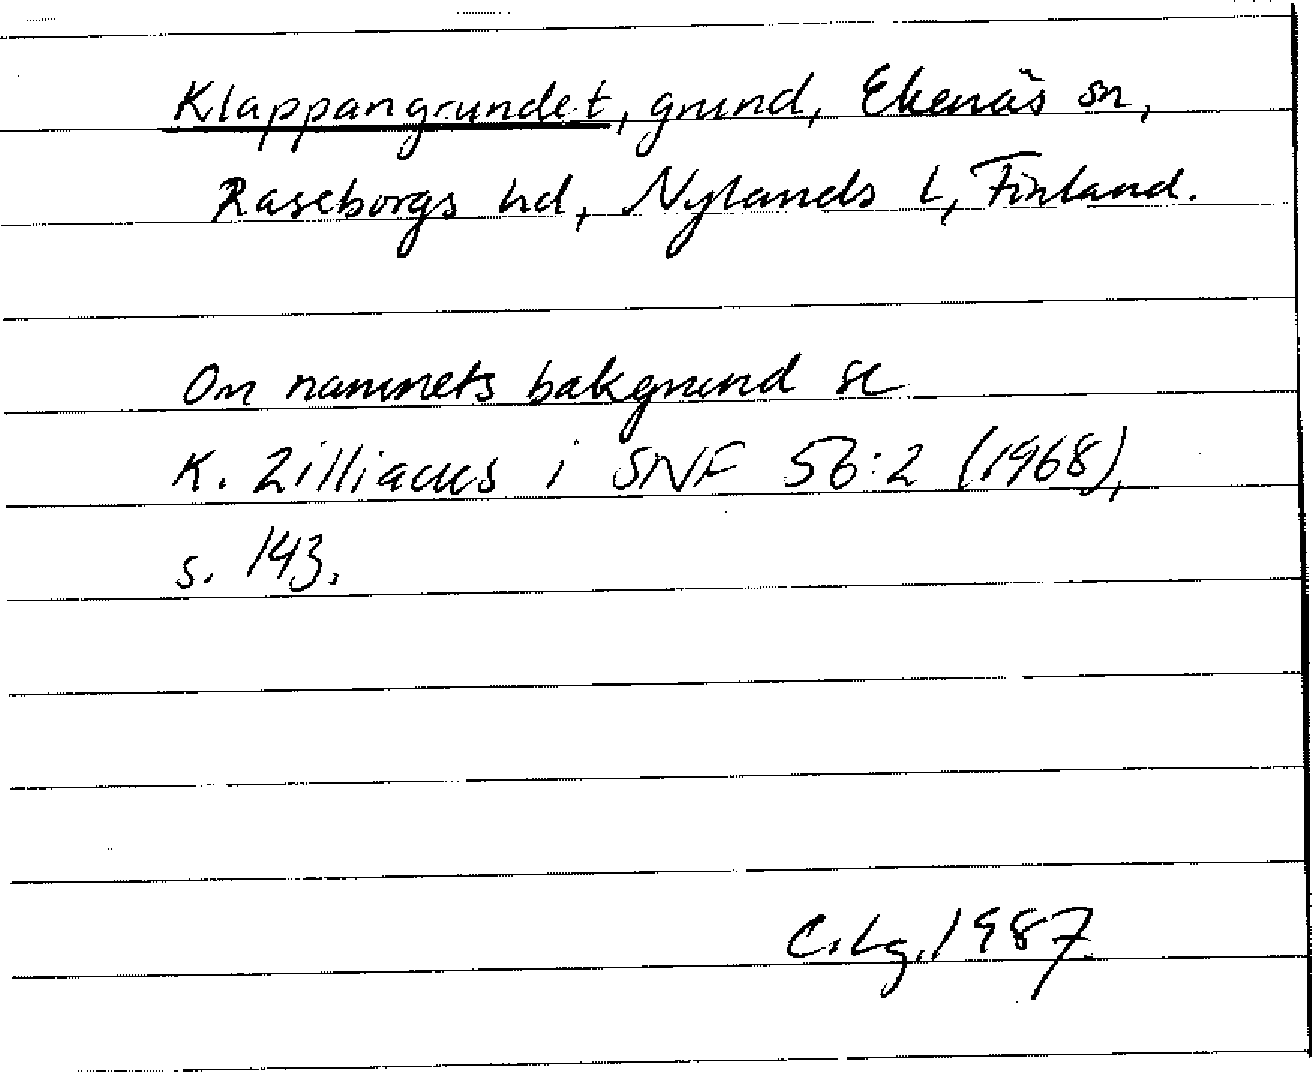 Klappangrundet, grund, Ekenäs sn,
Raseborgs hd, Nylands l, Finland.
Om namnets bakgrund se
K. Zilliacus i SNF 56:2 (1968),
s. 143.
C. Lg. 1987.